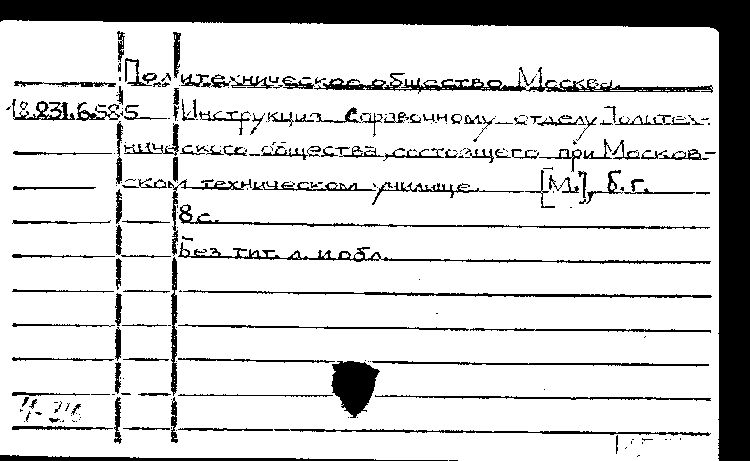 Политехническое общество. Москва.
18.231.6.585 Инструкция Справочному отделу Политех-
нического общества, состоящего при Москов-
ском техническом училище. [М.], б. г.
8 с.
Без тит. л. и обл.